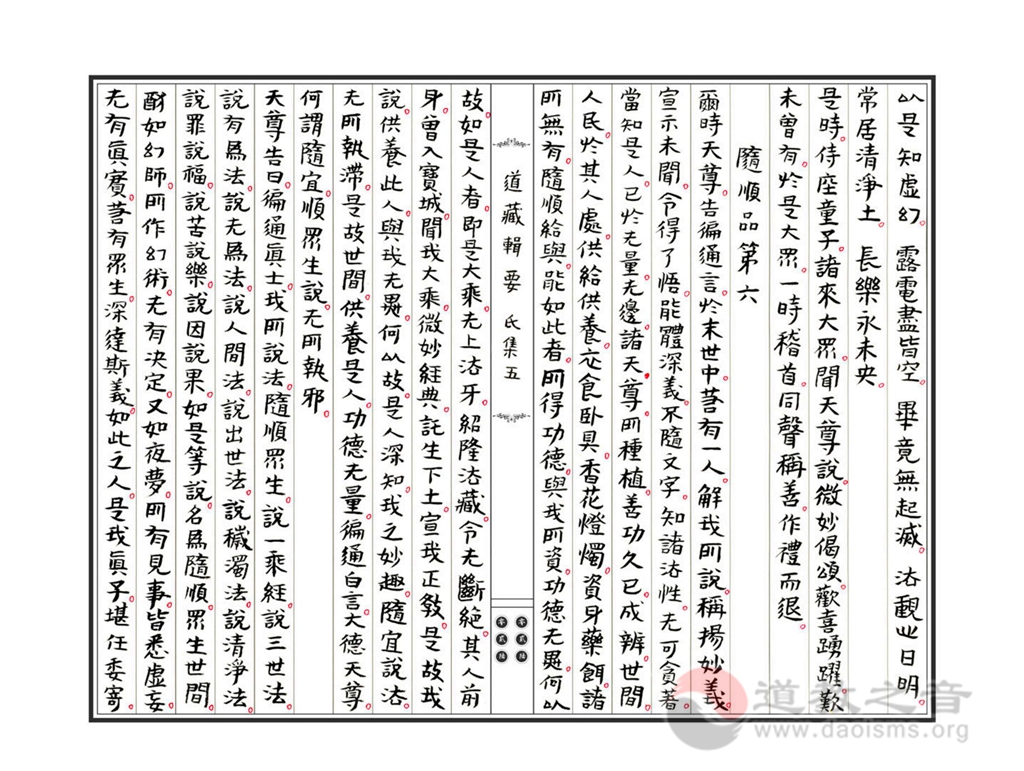 以是知虛幻 露電盡皆空 畢竟無起滅 法觀心日明
常居清淨土 長樂永未央
是時侍座童子諸來大眾聞天尊說微妙偈頌歡喜踴躍歎
未曾有於是大眾一時稽首同聲稱善作禮而退
隨順品第六
爾時天尊告徧通言於末世中若有一人解我所說稱揚妙義
宣示未聞令得了悟能體深義不隨文字知諸法性无可貪著
當知是人已於无量无邊諸天尊所種植善功久已成辦世間
人民於其人處供給供養衣食臥具香花燈燭資身藥餌諸
所無有隨順給與能如此者所得功德與我所資功德无異何以
道藏輯要 氐集五
零零
貳貳
陸陸
故如是人者即是大乘无上法牙紹隆法藏令无斷絕其人前
身曾入寶城聞我大乘微妙經典託生下土宣我正教是故我
說供養此人與我无異何以故是人深知我之妙趣隨宜說法
无所執滯是故世間供養是人功德无量徧通白言大德天尊
何謂隨宜順眾生說无所執邪
天尊告曰徧通真士我所說法隨順眾生說一乘經說三世法
說有為法說无為法說人間法說出世法說穢濁法說清淨法
說罪說福說苦說樂說因說果如是等說名為隨順眾生世間
酬如幻師所作幻術无有決定又如夜夢所有見事皆悉虛妄
无有真實若有眾生深達斯義如此之人是我真子堪任委寄
道教之音
www.daoisms.org